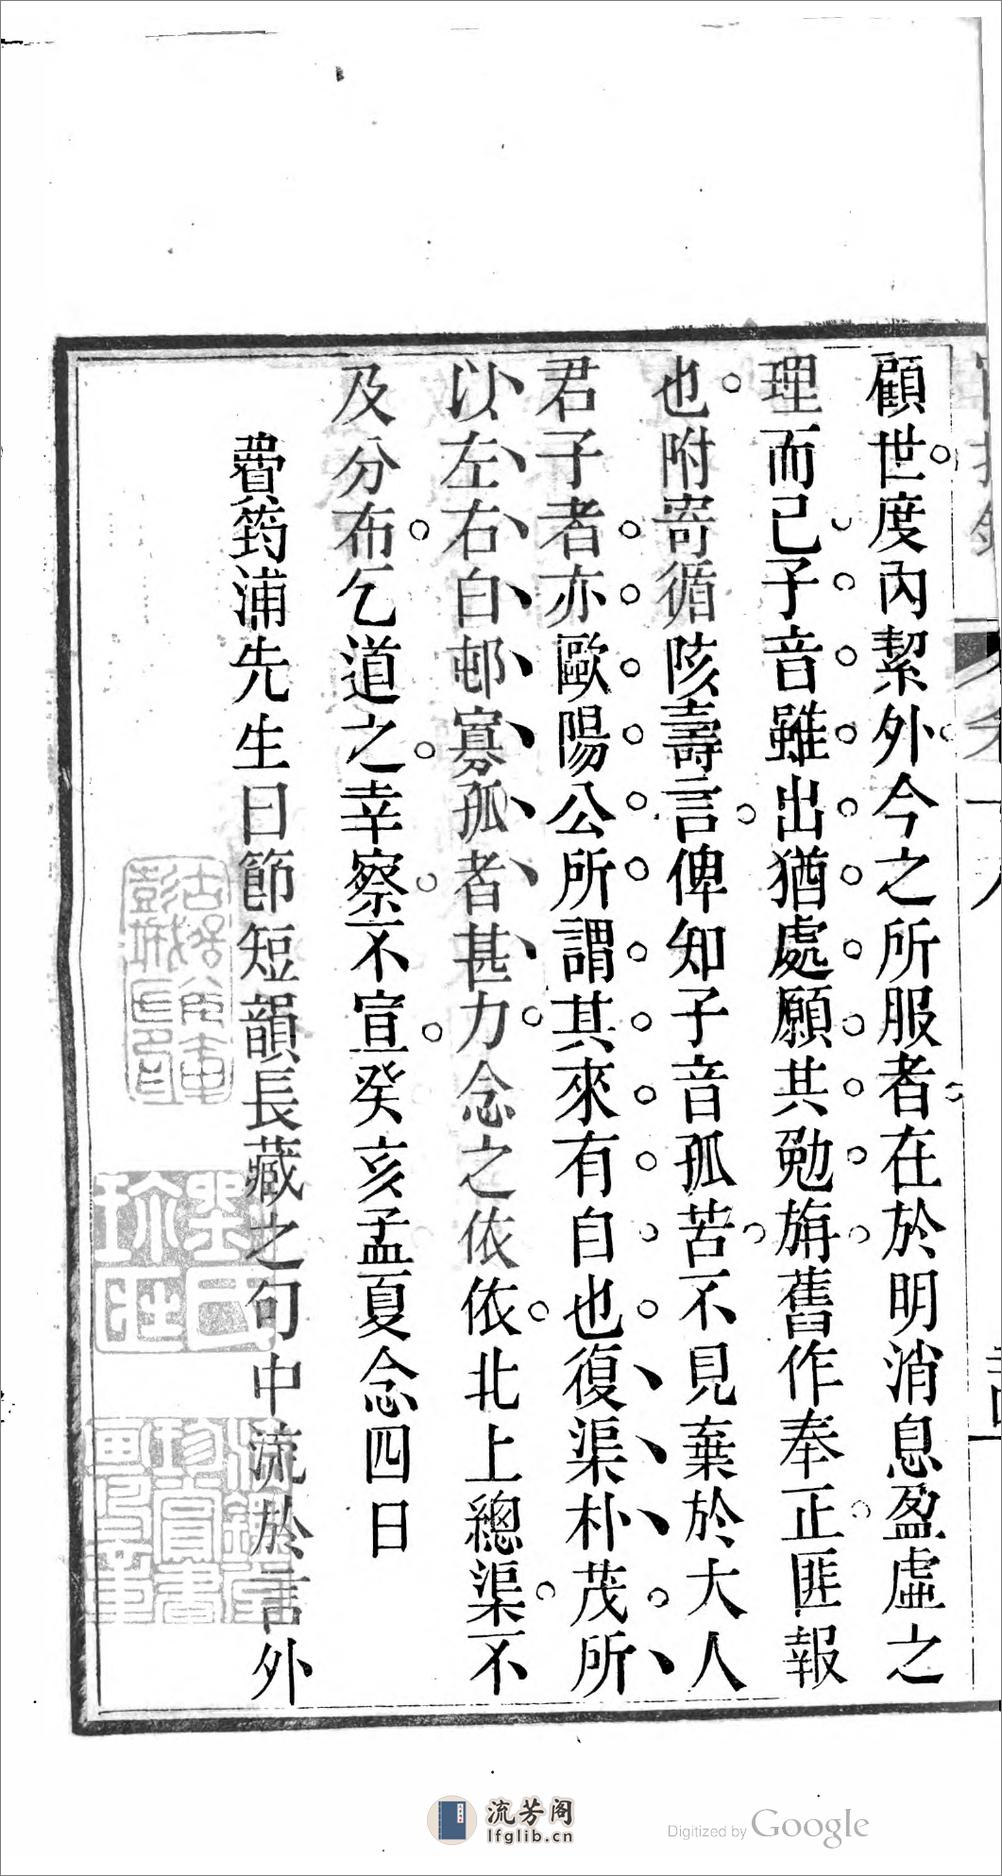 顧世度內絜外今之所服者在於明消息盈虛之
理而已子音雖出猶處願共勉旃舊作奉正匪報
也附寄循陔壽言俾知子音孤苦不見棄於大人
君子者亦歐陽公所謂其來有自也復渠朴茂所
以左右白邨寡孤者甚力念之依依北上總渠不
及分布乞道之幸察不宣癸亥孟夏念四日
費筠浦先生曰節短韻長藏之句中流於言外
劉氏
流芳阁
lfglib.cn
Digitized by Google